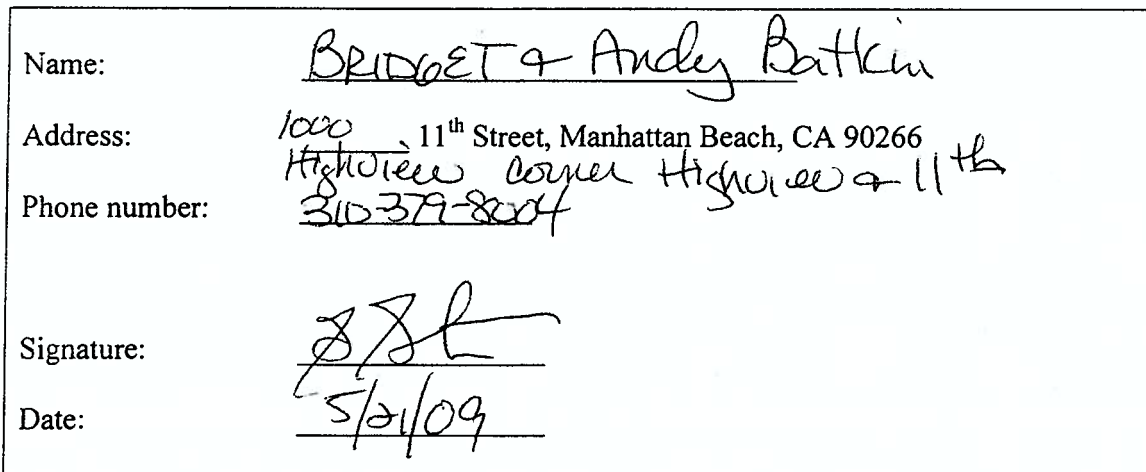 Name: BRIDGET & Andy Batkin
Address: 1000, 11th Street, Manhattan Beach, CA 90266
Highview corner Highview & 11th
Phone number: 310-379-8004
Signature:
Date: 5/21/09